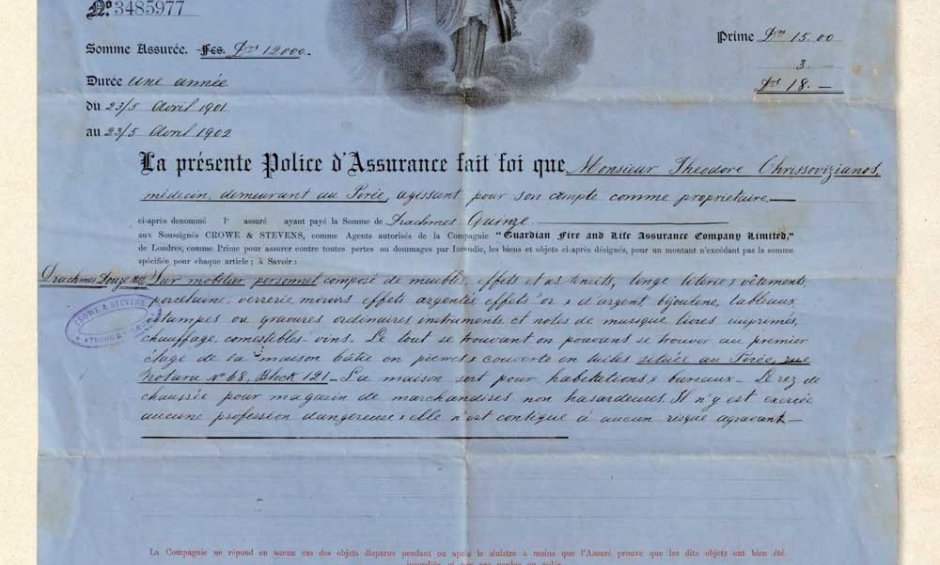 No 3485977
Somme Assurée. Fcs. Drs 12000.
Durée Une année
du 23/5 Avril 1901
au 23/5 Avril 1902
Prime Drs 15.00
3
Drs 18.—
La présente Police d'Assurance fait foi que Monsieur Theodore Chrissovizianos,
médecin, demeurant au Pirée, agissant pour son compte comme propriétaire.—
ci-après denommé l' assuré ayant payé la Somme de Drachmes Quinze.
aux Soussignés CROWE & STEVENS, comme Agents autorisés de la Compagnie "Guardian Fire and Life Assurance Company Limited,"
de Londres, comme Prime pour assurer contre toutes pertes ou dommages par Incendie, les biens et objets ci-après désignés, pour un montant n'excédant pas la somme
spécifiée, pour chaque article; à Savoir:
Drachmes Douze Sur mobilier personnel composé de meubles, effets et ustensils, linge literie & vêtements,
porcelaine, verrerie, miroirs effets argentés effets d'or & d'argent bijouterie, tableaux
estampes ou gravures ordinaires instruments et notes de musique livres imprimés,
chauffage, comestibles, vins. Le tout se trouvant ou pouvant se trouver au premier
étage de la maison bâtie en pierres & couverte en tuiles située au Pirée, rue
Notara No 68, Block 121.— La maison sert pour habitations & bureaux.— Le rez de
chaussée pour magasin de marchandises non hasardeuses. Il n'y est exercée
aucune profession dangereuse & elle n'est contigue à aucun risque agravant.—
CROWE & STEVENS
La Compagnie ne répond en aucun cas des objets disparus pendant ou après le sinistre à moins que l'Assuré prouve que les dits objets ont bien été